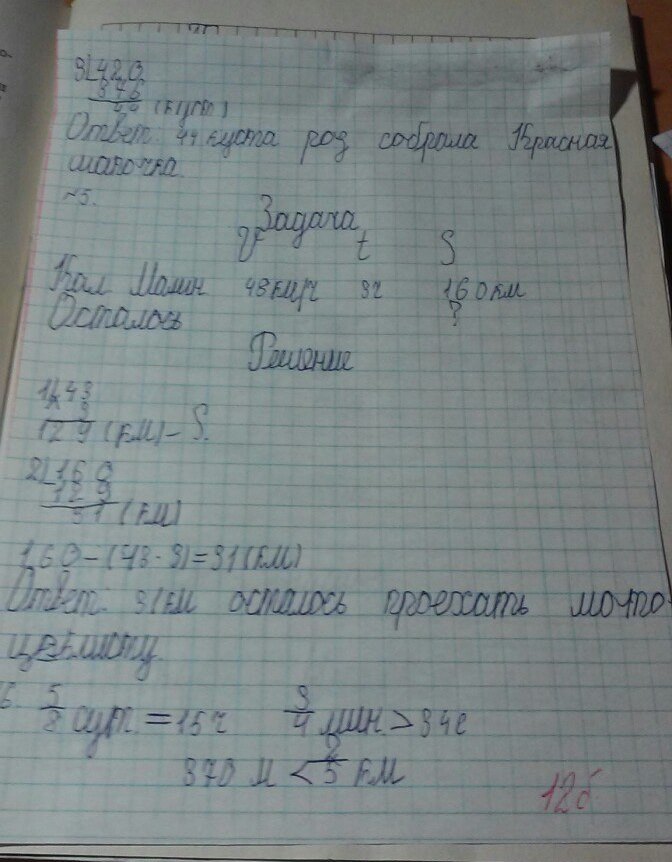 3) 420
376
44 (куст)
Ответ: 44 куста роз собрала Красная
шапочка.
~5.
Задача
V t S
Кол Мотоц 43 км/ч 3ч 160 км
Осталось ?
Решение
1) 43
× 3
129 (км) – S.
2) 160
129
31 (км)
160 – (43 · 3) = 31 (км)
Ответ: 31 км осталось проехать мото-
циклисту.
6. 5/8 сут. = 15 ч 3/4 мин. > 34 с
370 м < 2/5 км
12б